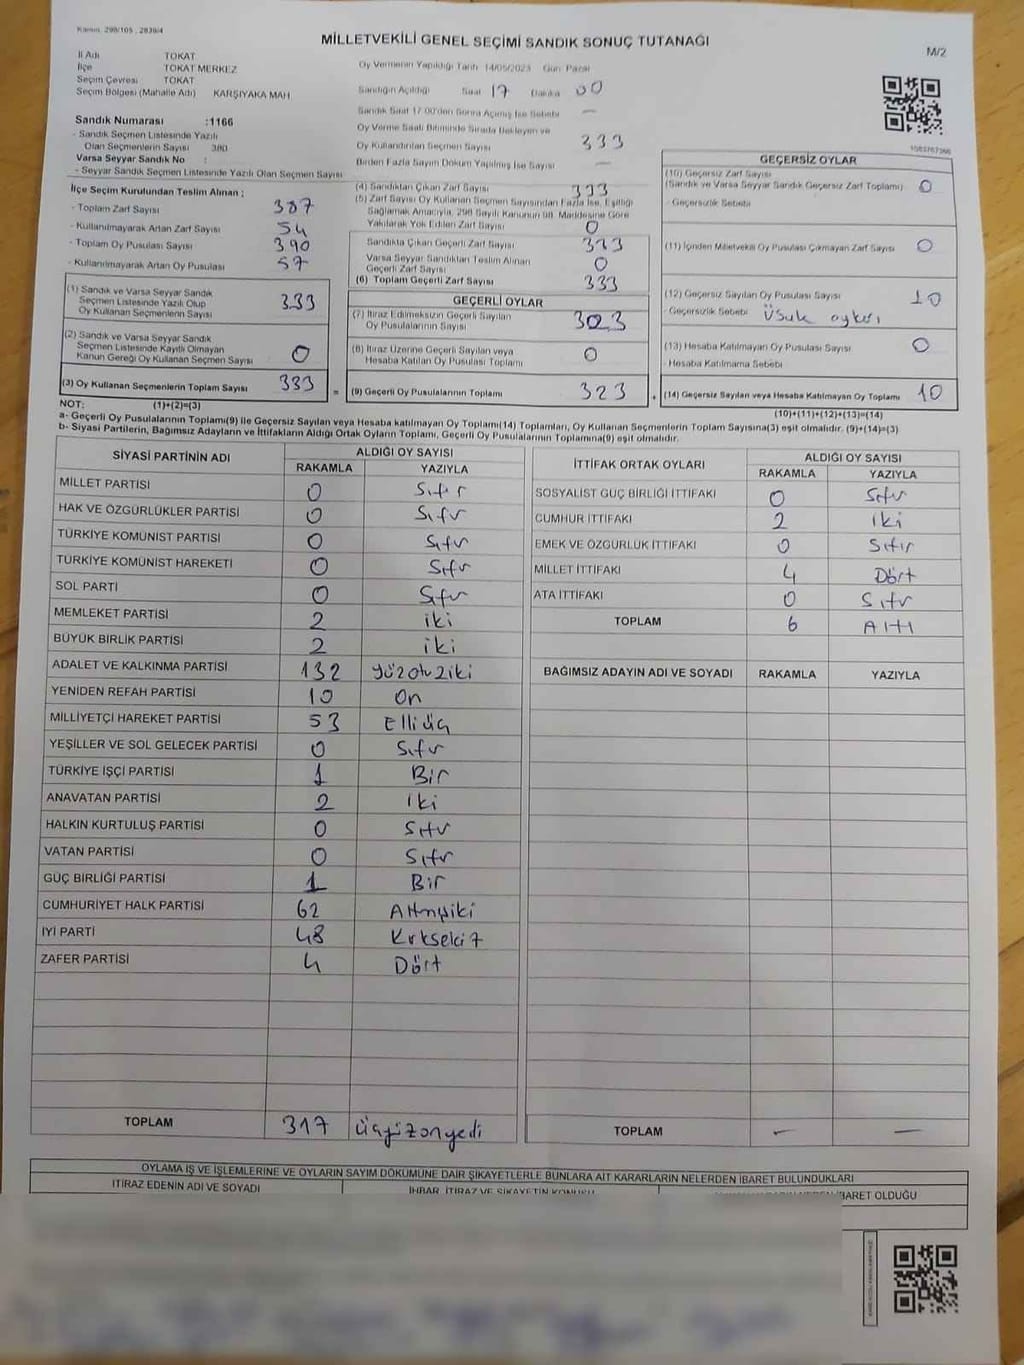 Kanun, 298/105 , 2839/4
MİLLETVEKİLİ GENEL SEÇİMİ SANDIK SONUÇ TUTANAĞI
M/2
İl Adı TOKAT
İlçe TOKAT MERKEZ
Seçim Çevresi TOKAT
Seçim Bölgesi (Mahalle Adı) KARŞIYAKA MAH.
Sandık Numarası :1166
- Sandık Seçmen Listesinde Yazılı
Olan Seçmenlerin Sayısı 380
Varsa Seyyar Sandık No :
- Seyyar Sandık Seçmen Listesinde Yazılı Olan Seçmen Sayısı
Oy Vermenin Yapıldığı Tarih 14/05/2023 Gün Pazar
Sandığın Açıldığı Saat 17 Dakika 00
Sandık Saat 17.00'den Sonra Açılmış İse Sebebi —
Oy Verme Saati Bitiminde Sırada Bekleyen ve
Oy Kullandırılan Seçmen Sayısı 333
Birden Fazla Sayım Döküm Yapılmış İse Sayısı —
İlçe Seçim Kurulundan Teslim Alınan ;
- Toplam Zarf Sayısı 387
- Kullanılmayarak Artan Zarf Sayısı 54
- Toplam Oy Pusulası Sayısı 390
- Kullanılmayarak Artan Oy Pusulası 57
(1) Sandık ve Varsa Seyyar Sandık
Seçmen Listesinde Yazılı Olup
Oy Kullanan Seçmenlerin Sayısı 333
(2) Sandık ve Varsa Seyyar Sandık
Seçmen Listesinde Kayıtlı Olmayan
Kanun Gereği Oy Kullanan Seçmen Sayısı 0
(3) Oy Kullanan Seçmenlerin Toplam Sayısı 333 =
(4) Sandıktan Çıkan Zarf Sayısı 333
(5) Zarf Sayısı Oy Kullanan Seçmen Sayısından Fazla İse, Eşitliği
Sağlamak Amacıyla, 298 Sayılı Kanunun 98. Maddesine Göre
Yakılarak Yok Edilen Zarf Sayısı 0
Sandıkta Çıkan Geçerli Zarf Sayısı 333
Varsa Seyyar Sandıktan Teslim Alınan
Geçerli Zarf Sayısı 0
(6) Toplam Geçerli Zarf Sayısı 333
GEÇERLİ OYLAR
(7) İtiraz Edilmeksizin Geçerli Sayılan
Oy Pusulalarının Sayısı 323
(8) İtiraz Üzerine Geçerli Sayılan veya
Hesaba Katılan Oy Pusulası Toplamı 0
(9) Geçerli Oy Pusulalarının Toplamı 323 +
GEÇERSİZ OYLAR
(10) Geçersiz Zarf Sayısı
(Sandık ve Varsa Seyyar Sandık Geçersiz Zarf Toplamı) 0
- Geçersizlik Sebebi
(11) İçinden Milletvekili Oy Pusulası Çıkmayan Zarf Sayısı 0
(12) Geçersiz Sayılan Oy Pusulası Sayısı 10
- Geçersizlik Sebebi
(13) Hesaba Katılmayan Oy Pusulası Sayısı 0
- Hesaba Katılmama Sebebi
(14) Geçersiz Sayılan veya Hesaba Katılmayan Oy Toplamı 10
NOT: (1)+(2)=(3) (10)+(11)+(12)+(13)=(14)
a- Geçerli Oy Pusulalarının Toplamı(9) ile Geçersiz Sayılan veya Hesaba katılmayan Oy Toplamı(14) Toplamları, Oy Kullanan Seçmenlerin Toplam Sayısına(3) eşit olmalıdır. (9)+(14)=(3)
b- Siyasi Partilerin, Bağımsız Adayların ve İttifakların Aldığı Ortak Oyların Toplamı, Geçerli Oy Pusulalarının Toplamına(9) eşit olmalıdır.
SİYASİ PARTİNİN ADI ALDIĞI OY SAYISI
RAKAMLA YAZIYLA
MİLLET PARTİSİ 0 Sıfır
HAK VE ÖZGÜRLÜKLER PARTİSİ 0 Sıfır
TÜRKİYE KOMÜNİST PARTİSİ 0 Sıfır
TÜRKİYE KOMÜNİST HAREKETİ 0 Sıfır
SOL PARTİ 0 Sıfır
MEMLEKET PARTİSİ 2 iki
BÜYÜK BİRLİK PARTİSİ 2 iki
ADALET VE KALKINMA PARTİSİ 132 yüzotuziki
YENİDEN REFAH PARTİSİ 10 On
MİLLİYETÇİ HAREKET PARTİSİ 53 Elliüç
YEŞİLLER VE SOL GELECEK PARTİSİ 0 Sıfır
TÜRKİYE İŞÇİ PARTİSİ 1 Bir
ANAVATAN PARTİSİ 2 iki
HALKIN KURTULUŞ PARTİSİ 0 Sıfır
VATAN PARTİSİ 0 Sıfır
GÜÇ BİRLİĞİ PARTİSİ 1 Bir
CUMHURİYET HALK PARTİSİ 62 Altmışiki
İYİ PARTİ 48 Kırksekiz
ZAFER PARTİSİ 4 Dört
TOPLAM 317 üçyüzonyedi
İTTİFAK ORTAK OYLARI ALDIĞI OY SAYISI
RAKAMLA YAZIYLA
SOSYALİST GÜÇ BİRLİĞİ İTTİFAKI 0 Sıfır
CUMHUR İTTİFAKI 2 iki
EMEK VE ÖZGÜRLÜK İTTİFAKI 0 Sıfır
MİLLET İTTİFAKI 4 Dört
ATA İTTİFAKI 0 Sıfır
TOPLAM 6 Altı
BAĞIMSIZ ADAYIN ADI VE SOYADI RAKAMLA YAZIYLA
TOPLAM — —
OYLAMA İŞ VE İŞLEMLERİNE VE OYLARIN SAYIM DÖKÜMÜNE DAİR ŞİKAYETLERLE BUNLARA AİT KARARLARIN NELERDEN İBARET BULUNDUKLARI
İTİRAZ EDENİN ADI VE SOYADI İHBAR, İTİRAZ VE ŞİKAYETİN KONUSU İBARET OLDUĞU